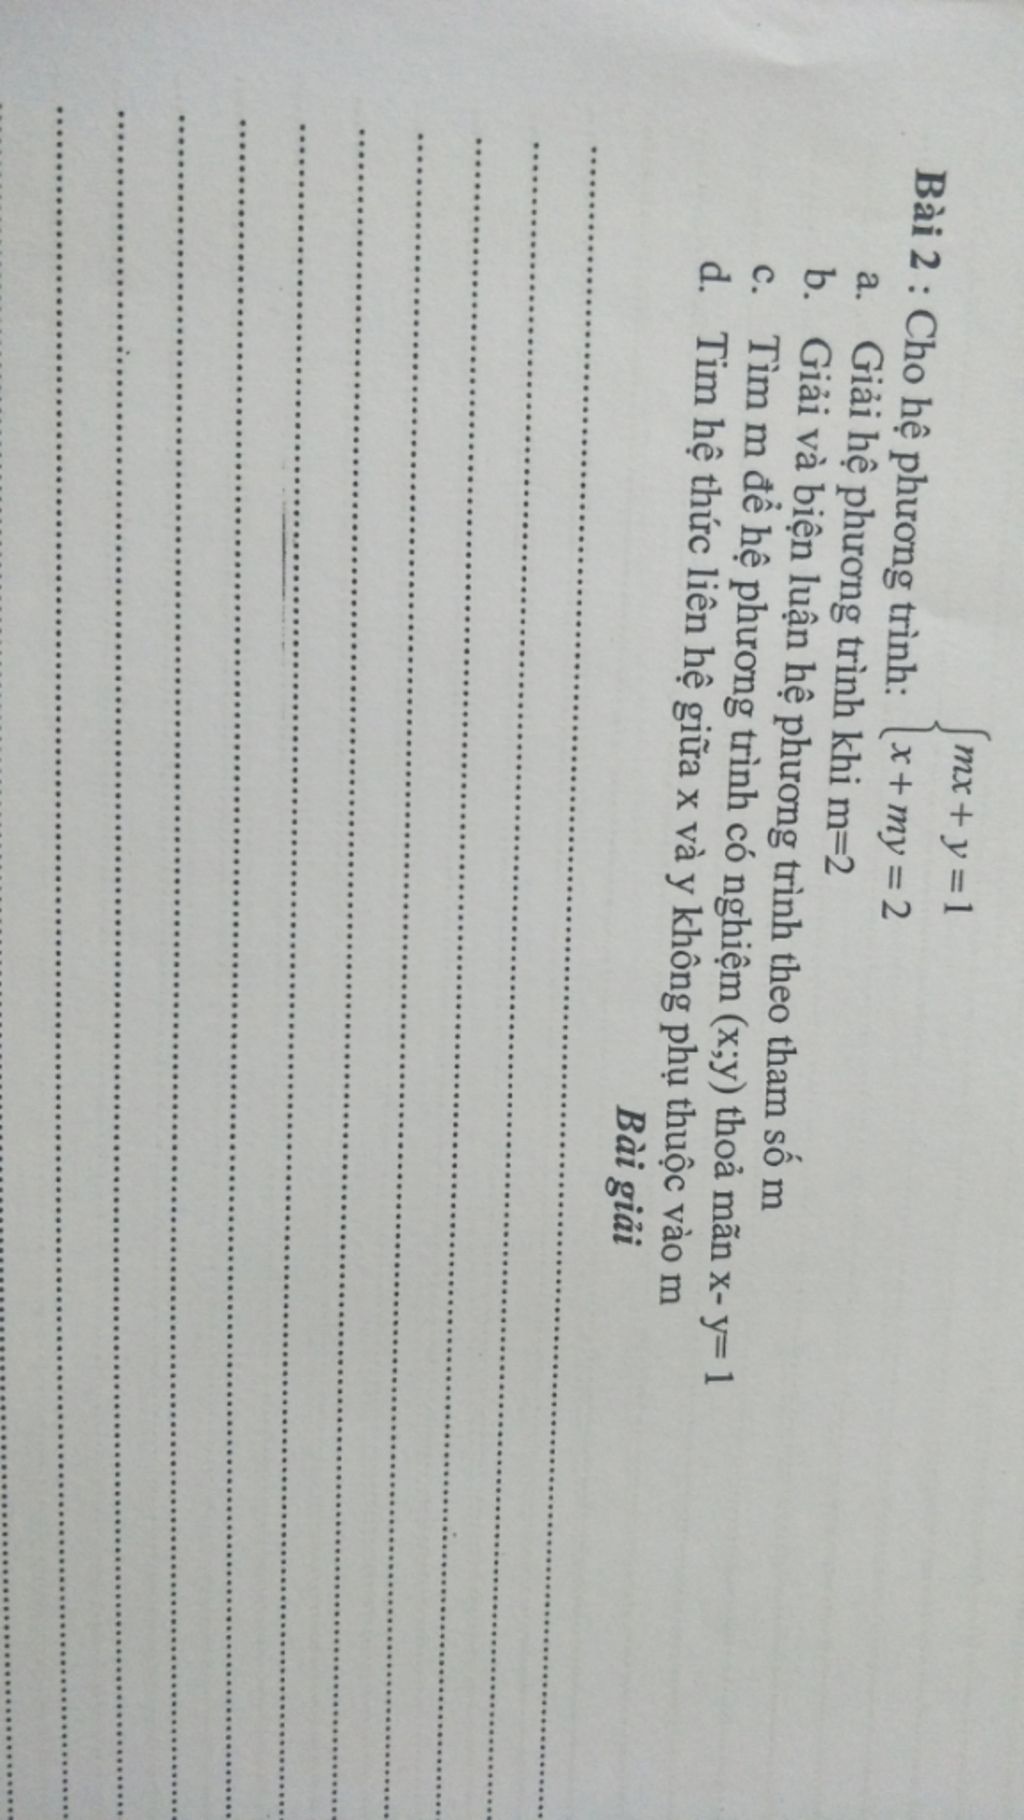 Bài 2 : Cho hệ phương trình: { mx + y = 1
x + my = 2
a. Giải hệ phương trình khi m=2
b. Giải và biện luận hệ phương trình theo tham số m
c. Tìm m để hệ phương trình có nghiệm (x;y) thoả mãn x- y= 1
d. Tìm hệ thức liên hệ giữa x và y không phụ thuộc vào m
Bài giải